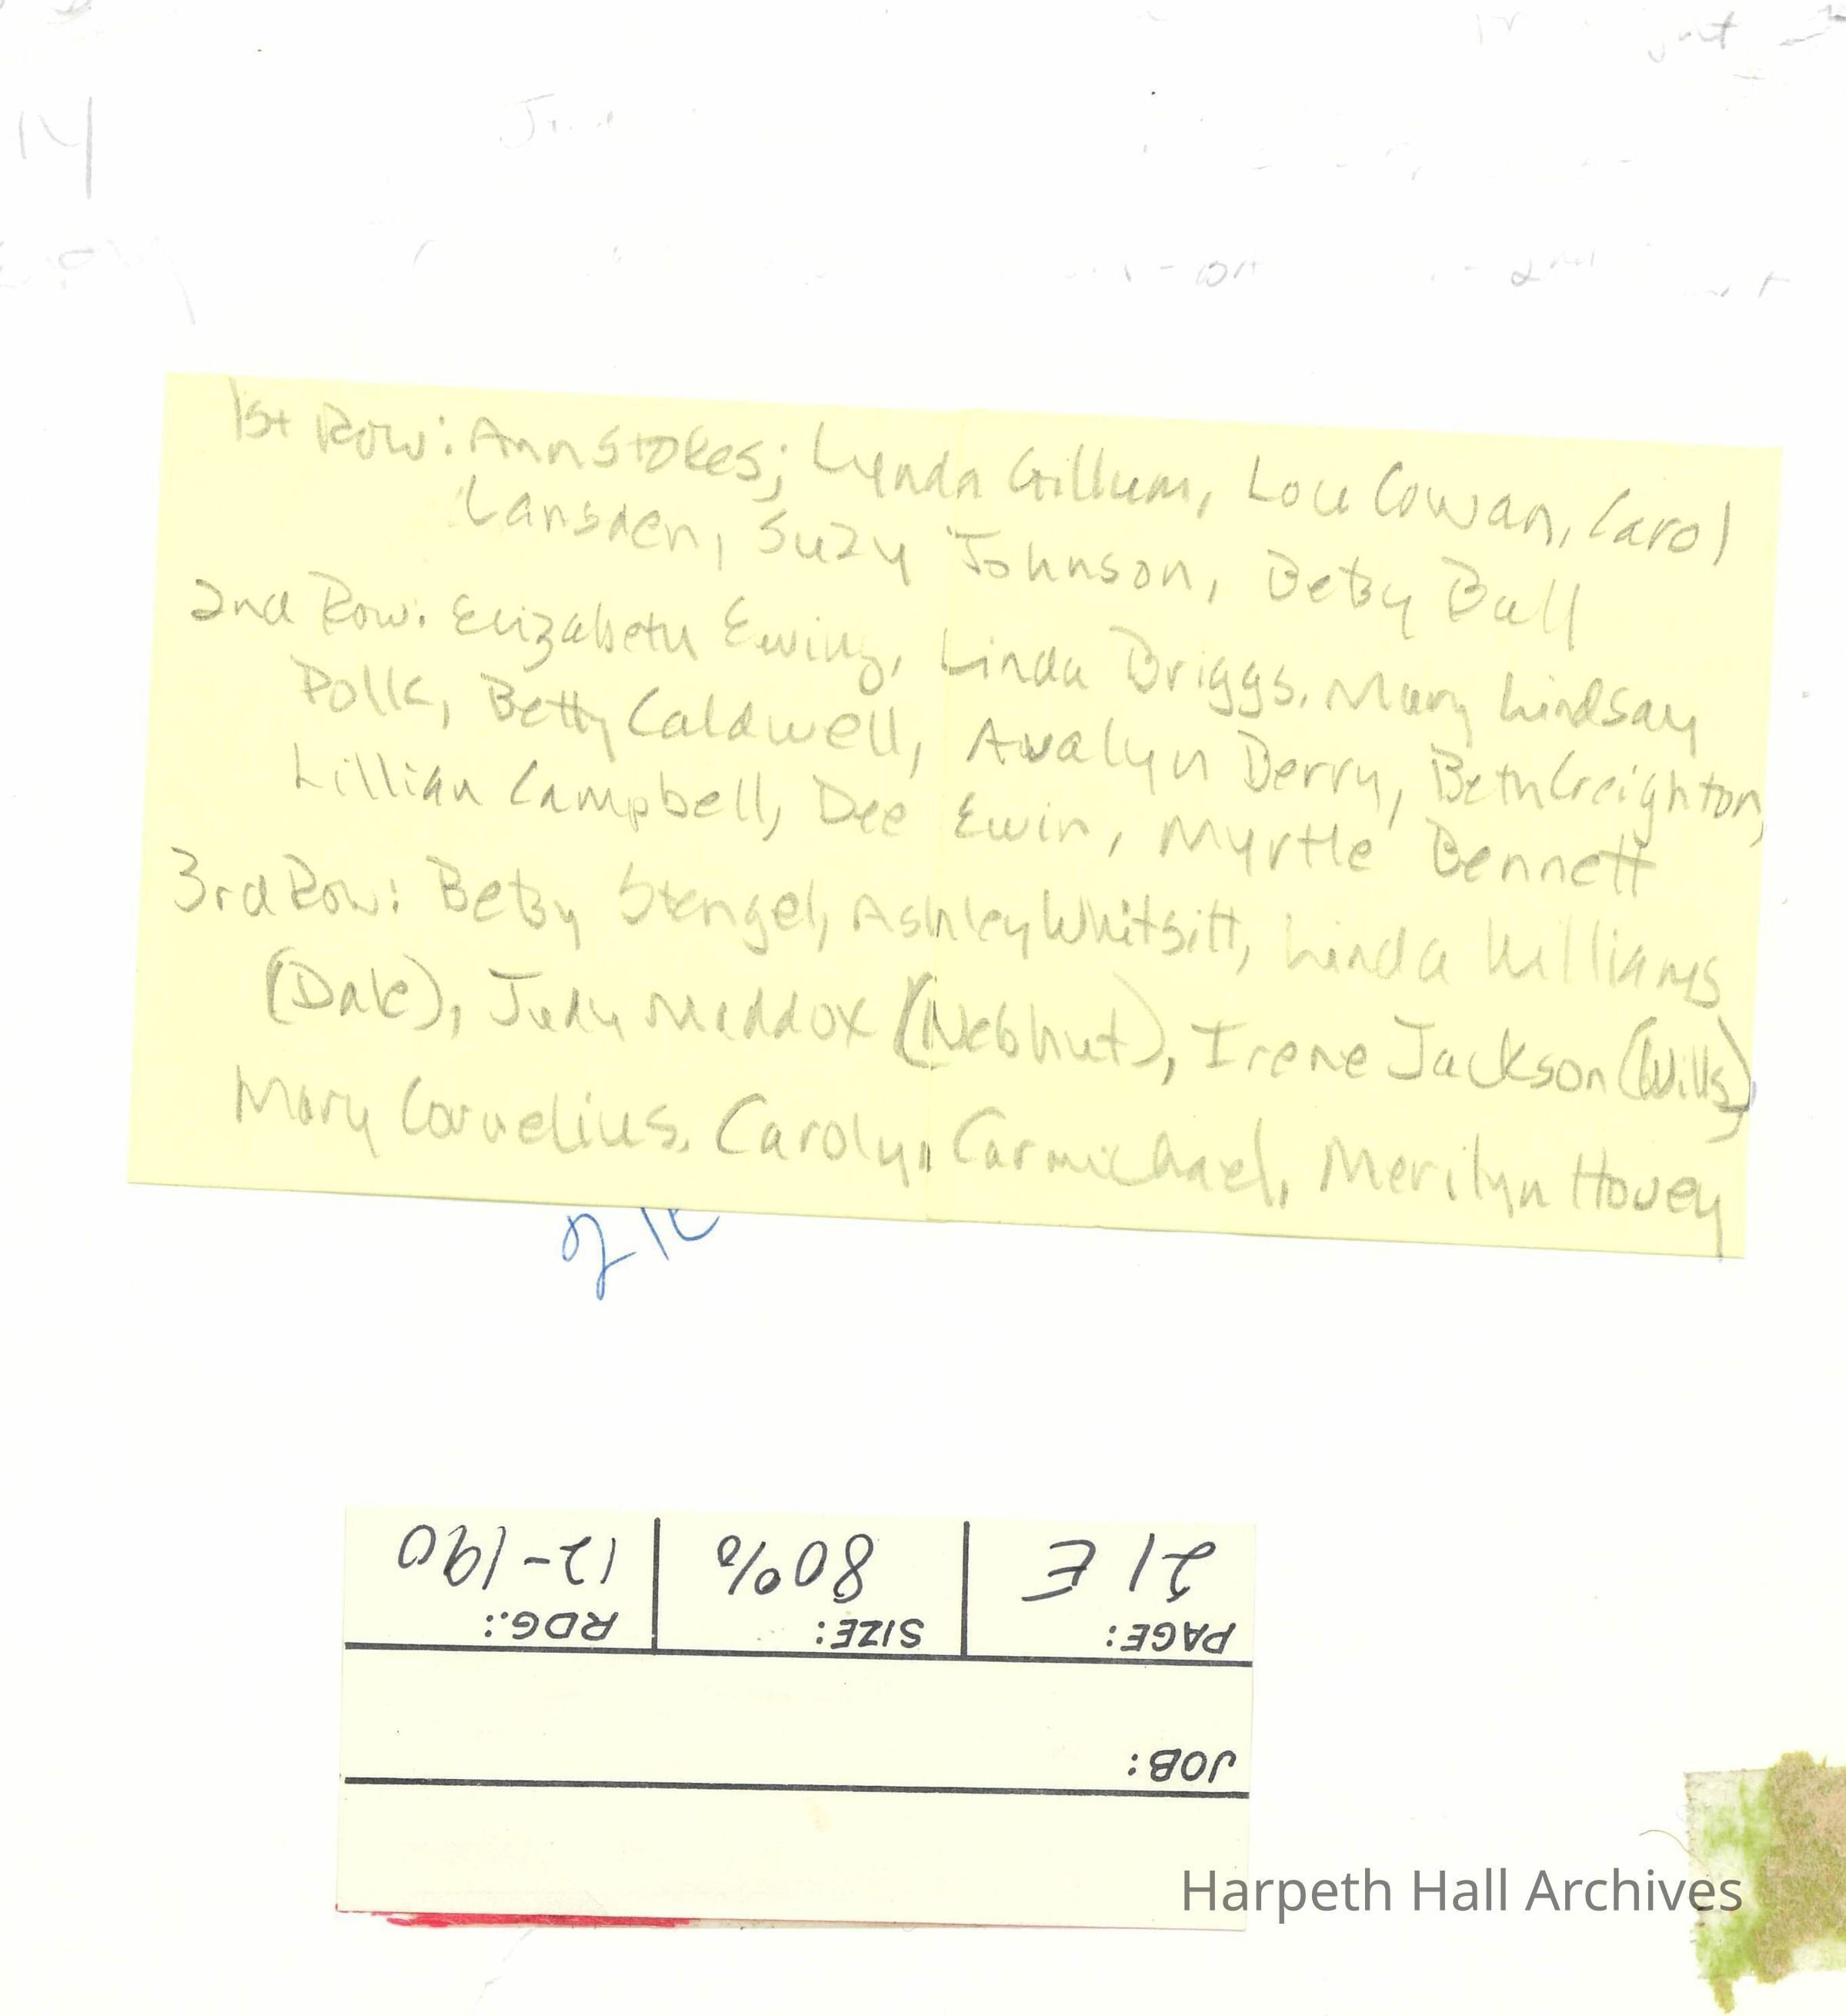 14
1st Row: Ann Stokes; Lynda Gillum, Lou Cowan, Carol
Lansden, Suzy Johnson, Betsy Ball
2nd Row: Elizabeth Ewing, Linda Briggs, Mary Lindsay
Polk, Betty Caldwell, Avalyn Berry, Beth Creighton,
Lillian Campbell, Dee Ewin, Myrtle Bennett
3rd Row: Betsy Stengel, Ashley Whitsitt, Linda Williams
(Dale), Judy Maddox (Nebhut), Irene Jackson (Wills)
Mary Cornelius, Carolyn Carmichael, Merilyn Hovey
JOB:
PAGE: SIZE: RDG.:
21 E 80% 12-190
Harpeth Hall Archives